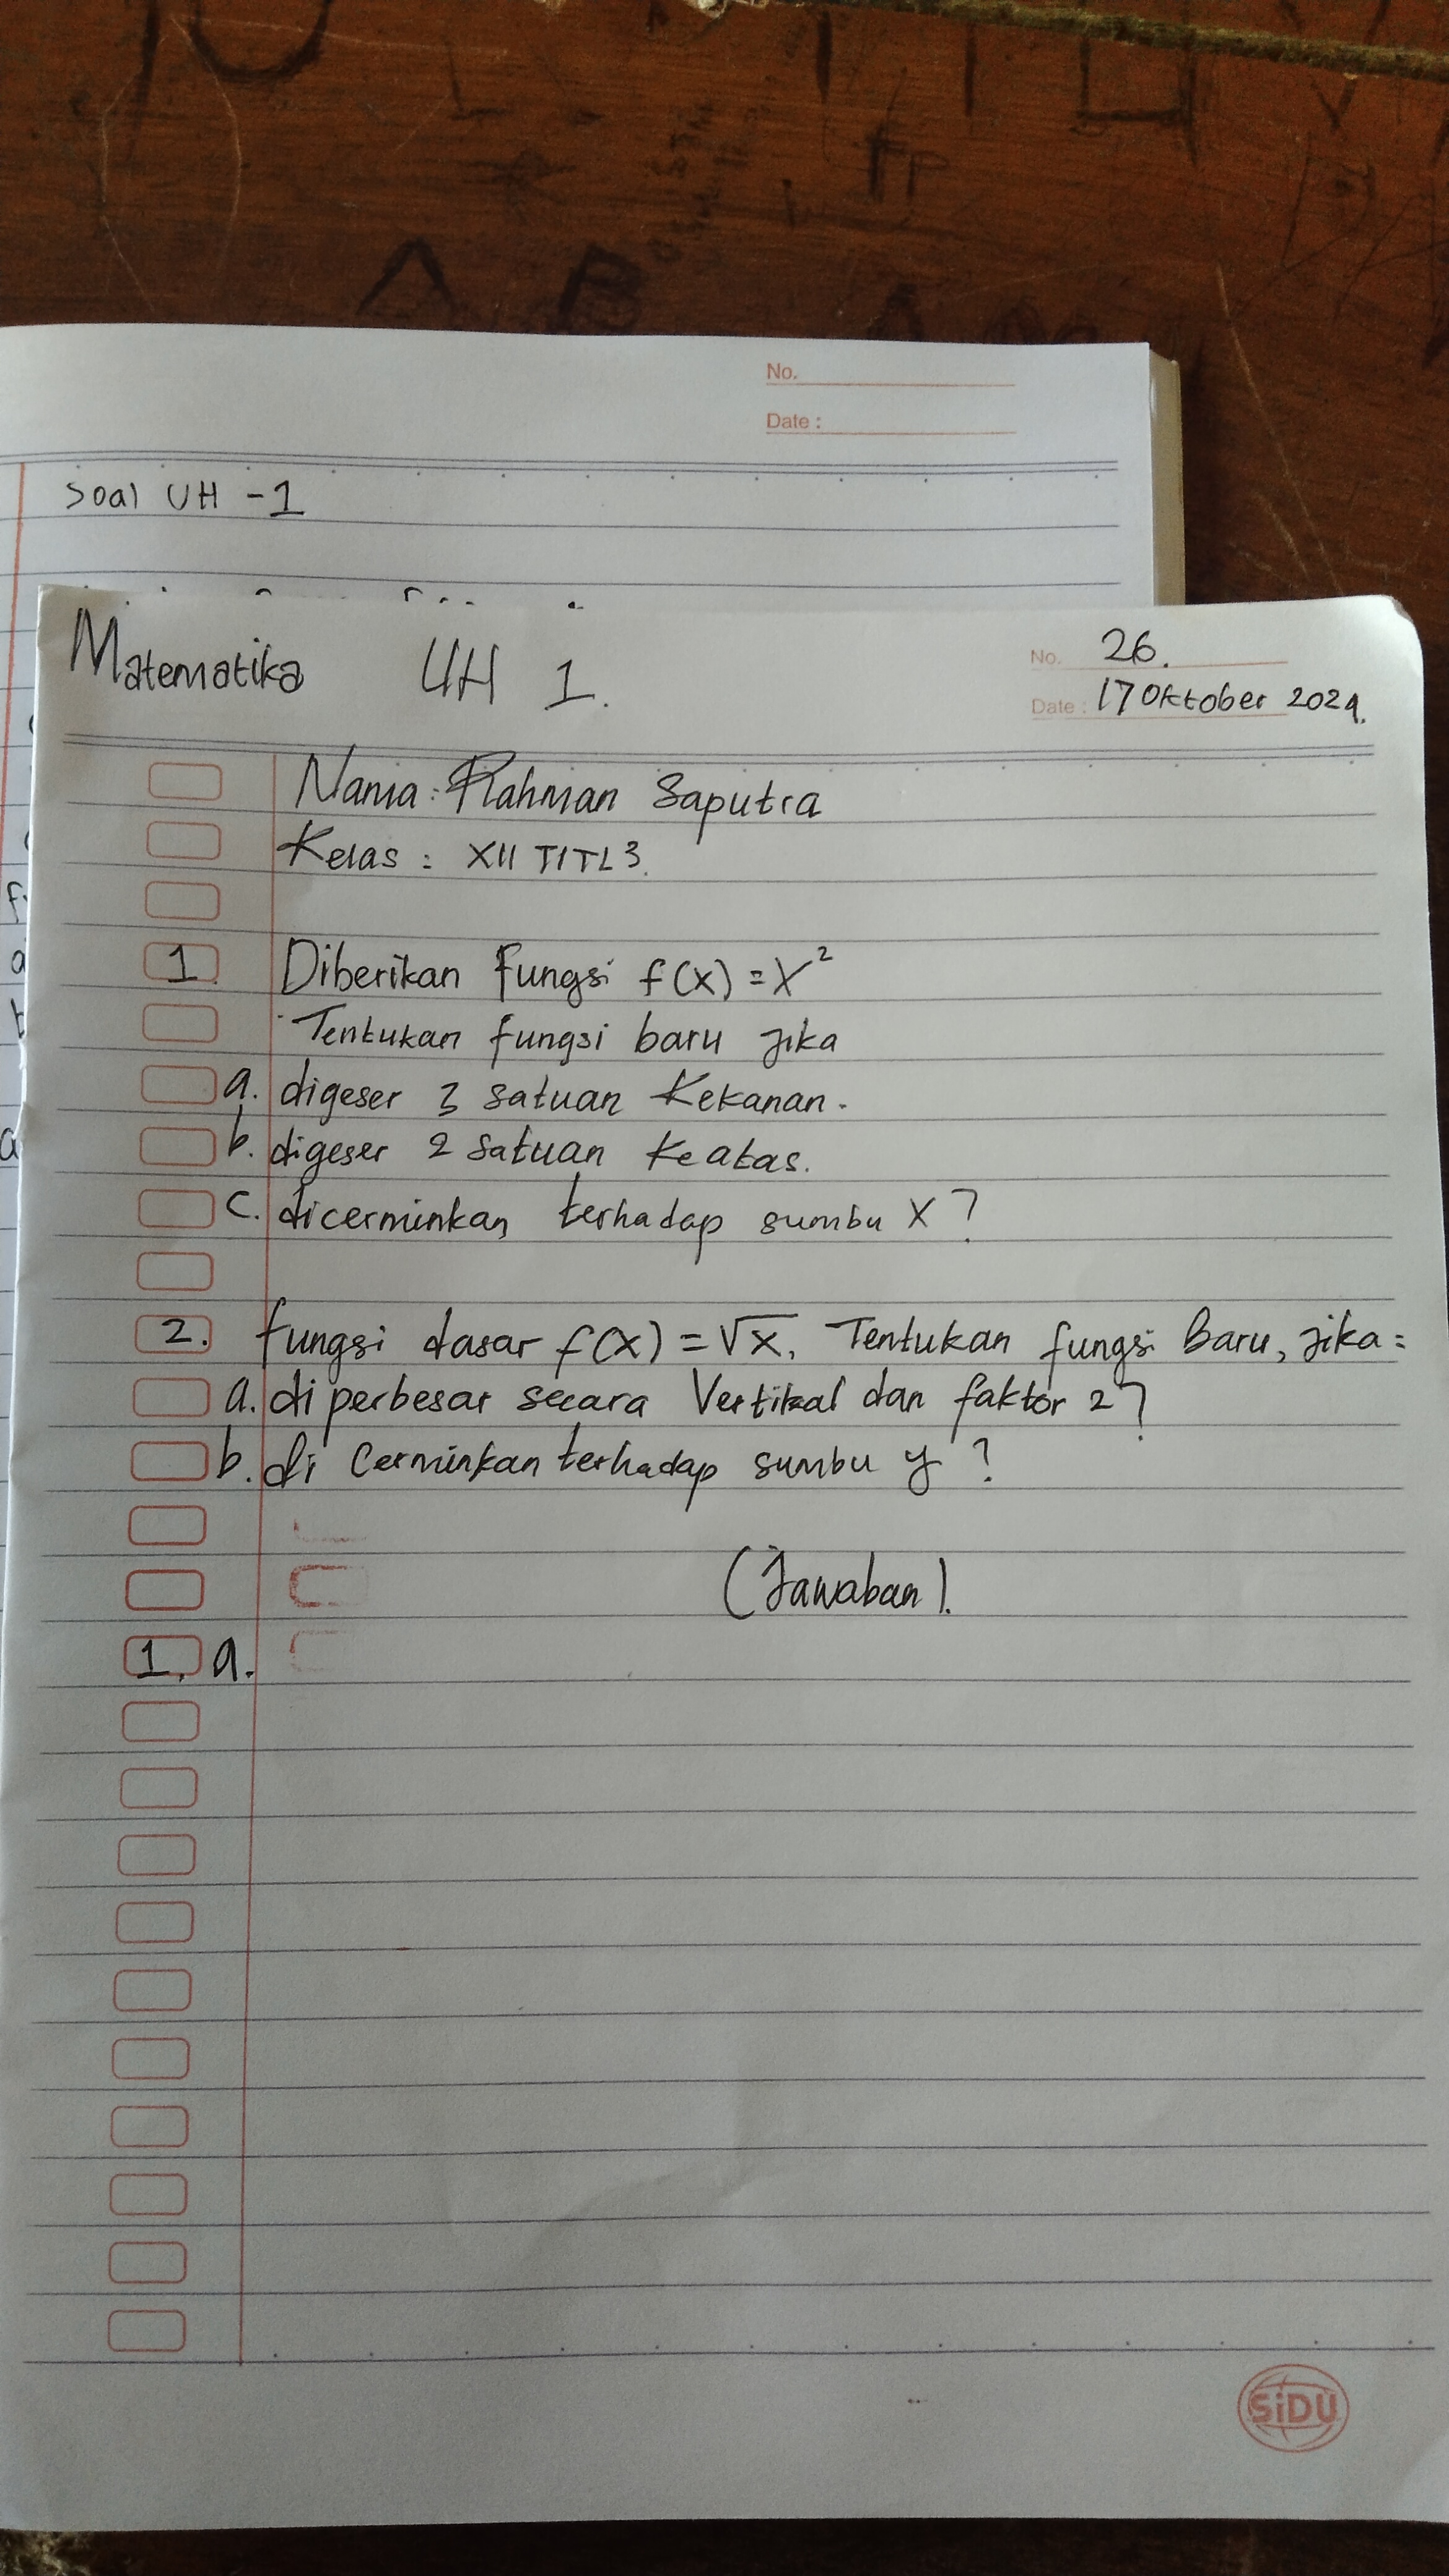 No.
Date :
Soal UH - 1
Matematika UH 1.
No. 26.
Date : 17 Oktober 2024.
Nama : Rahman Saputra
Kelas : XII TITL 3.
1. Diberikan Fungsi f(x) = x²
Tentukan fungsi baru jika
a. digeser 3 satuan kekanan.
b. digeser 2 satuan keatas.
c. dicerminkan terhadap sumbu X ?
2. fungsi dasar f(x) = √x. Tentukan fungsi Baru, jika =
a. di perbesar secara Vertikal dan faktor 2 ?
b. di Cerminkan terhadap sumbu y ?
(Jawaban).
1. a.
SiDU